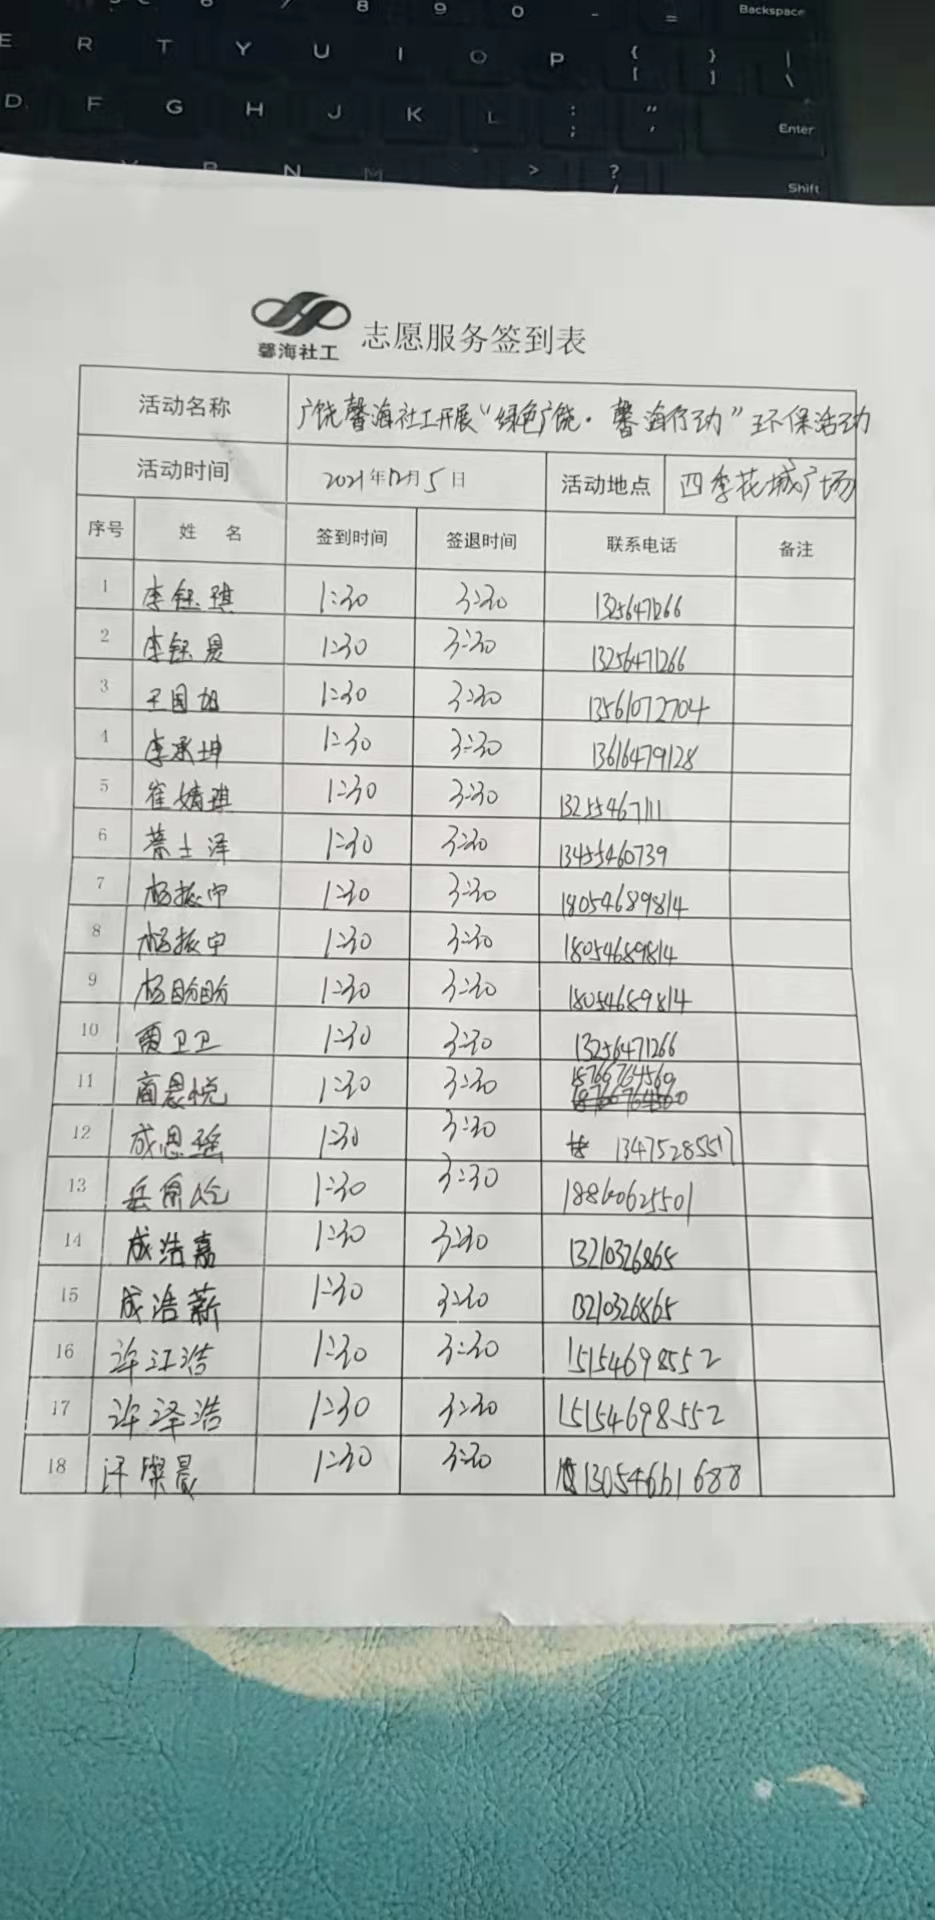 Backspace
8 9 0 - =
E R T Y U I O P { [ } ] | \
D F G H J K L : ; " ' Enter
N M > ? / Shift
馨海社工
志愿服务签到表
活动名称 广饶馨海社工开展“绿色广饶·馨海行动”环保活动
活动时间 2021年12月5日 活动地点 四季花城广场
序号 姓 名 签到时间 签退时间 联系电话 备注
1 李钰琪 1:30 3:30 13256471266
2 李钰晨 1:30 3:30 13256471266
3 王国旭 1:30 3:30 13561072704
4 李承坤 1:30 3:30 13616479128
5 崔婧琪 1:30 3:30 13255467111
6 蔡士泽 1:30 3:30 13455460739
7 杨振中 1:30 3:30 18054689814
8 杨振中 1:30 3:30 18054689814
9 杨盼盼 1:30 3:30 18054689814
10 贾卫卫 1:30 3:30 13256471266
11 商恩悦 1:30 3:30 15766764569
12 成恩瑶 1:30 3:30 13475285517
13 岳 1:30 3:30 18860625501
14 成浩嘉 1:30 3:30 13210326865
15 成浩薪 1:30 3:30 13210326865
16 许江浩 1:30 3:30 15154698552
17 许泽浩 1:30 3:30 15154698552
18 汗璨晨 1:30 3:30 13054661688